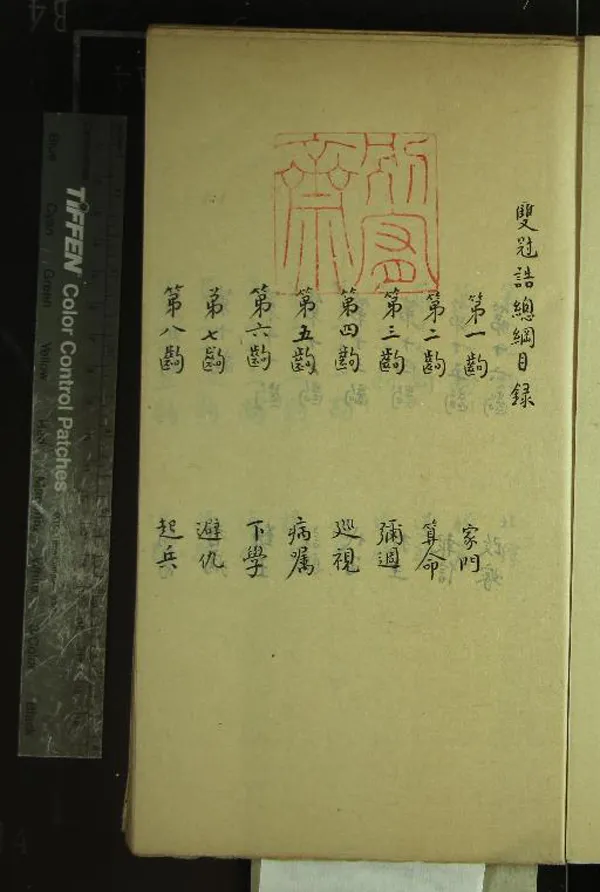 雙冠誥總綱目録
第一齣 家門
第二齣 算命
第三齣 彌週
第四齣 巡視
第五齣 病嘱
第六齣 下學
第七齣 避仇
第八齣 起兵
TIFFEN Color Control Patches
Blue
Cyan
Green
Yellow
Red
Magenta
White
3/Color
Black